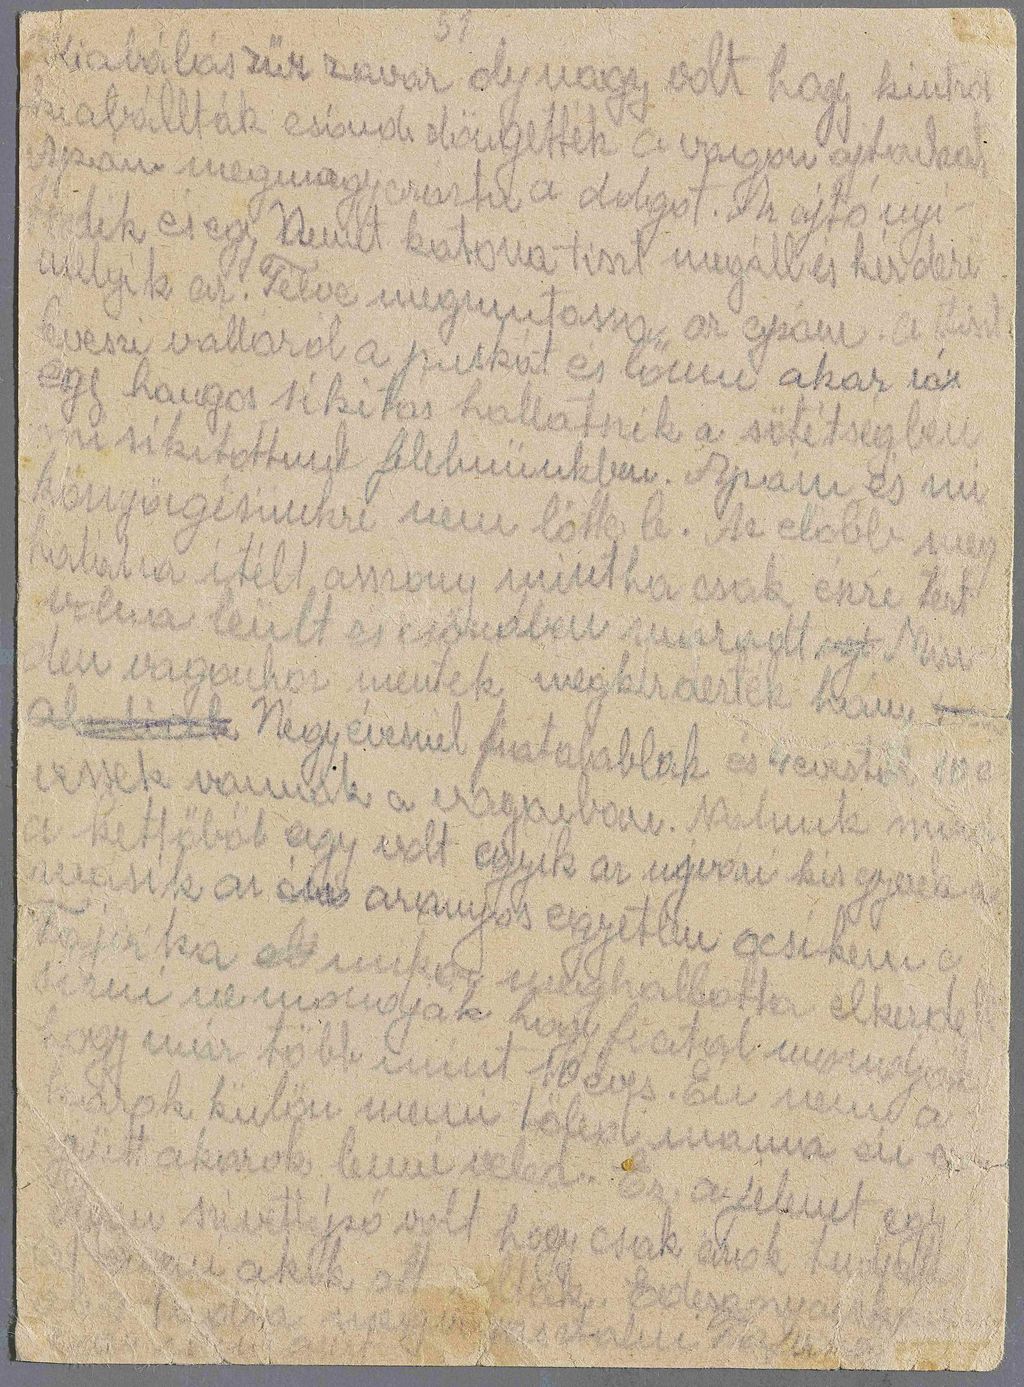 51
Kiabálás zűr zavar oly nagy volt hogy kintról
kiabállták csönd döngették a vagon ajtónkat
Apám megmagyarázta a dolgot. Az ajtó nyi-
lódik és egy Német katona tiszt megáll és kérdezi
mellyik az. Felve megmutassa az apám. A tiszt
leveszi válláról a puskát és lőnni akar rá
egy hangos sikítás hallatnik a sötétségben
mi sikitottunk félelmünkben. Apám és mi
könyörgésünkre nem lőtte le. Az előbb meg
halálra itélt asszony mintha csak észre tért
volna leült és csöndben maradt Min-
den vagonhoz mentek megkérdezték hány
Négyévesnél fiatalabbak és 4 évestöl 10 é
vessek vannak a vagonban. Nálunk mind
a kettőböl egy volt egyik az ujvári kis gyerek a
másik az aranyos egyetlen öcsikém a
mikor meghallotta elkezdett
sirni ne mondják hogy fiatal mondják
hogy már több mint 10 éves. Én nem a
karok külön menni tőled mama én e
gyütt akarok lenni veled. Ez a jelenet egy
szivettépő volt hogy csak azok tudják
akik ott voltak. Édesanyácskám